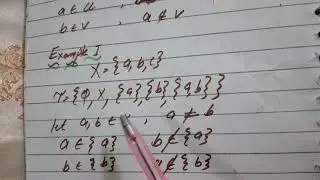 a ∈ U
b ∈ V , a ∉ V
Example I
X = {a,b,c}
τ = {Φ, X, {a} {b} {a,b}}
let a, b ∈ , a ≠ b
a ∈ {a} b ∉ {a}
b ∈ {b} a ∉ {b}